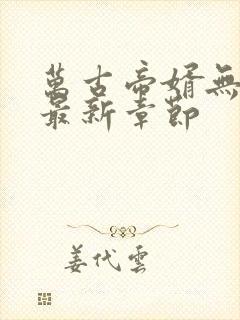 萬古帝婿無
最新章節
姜代雲